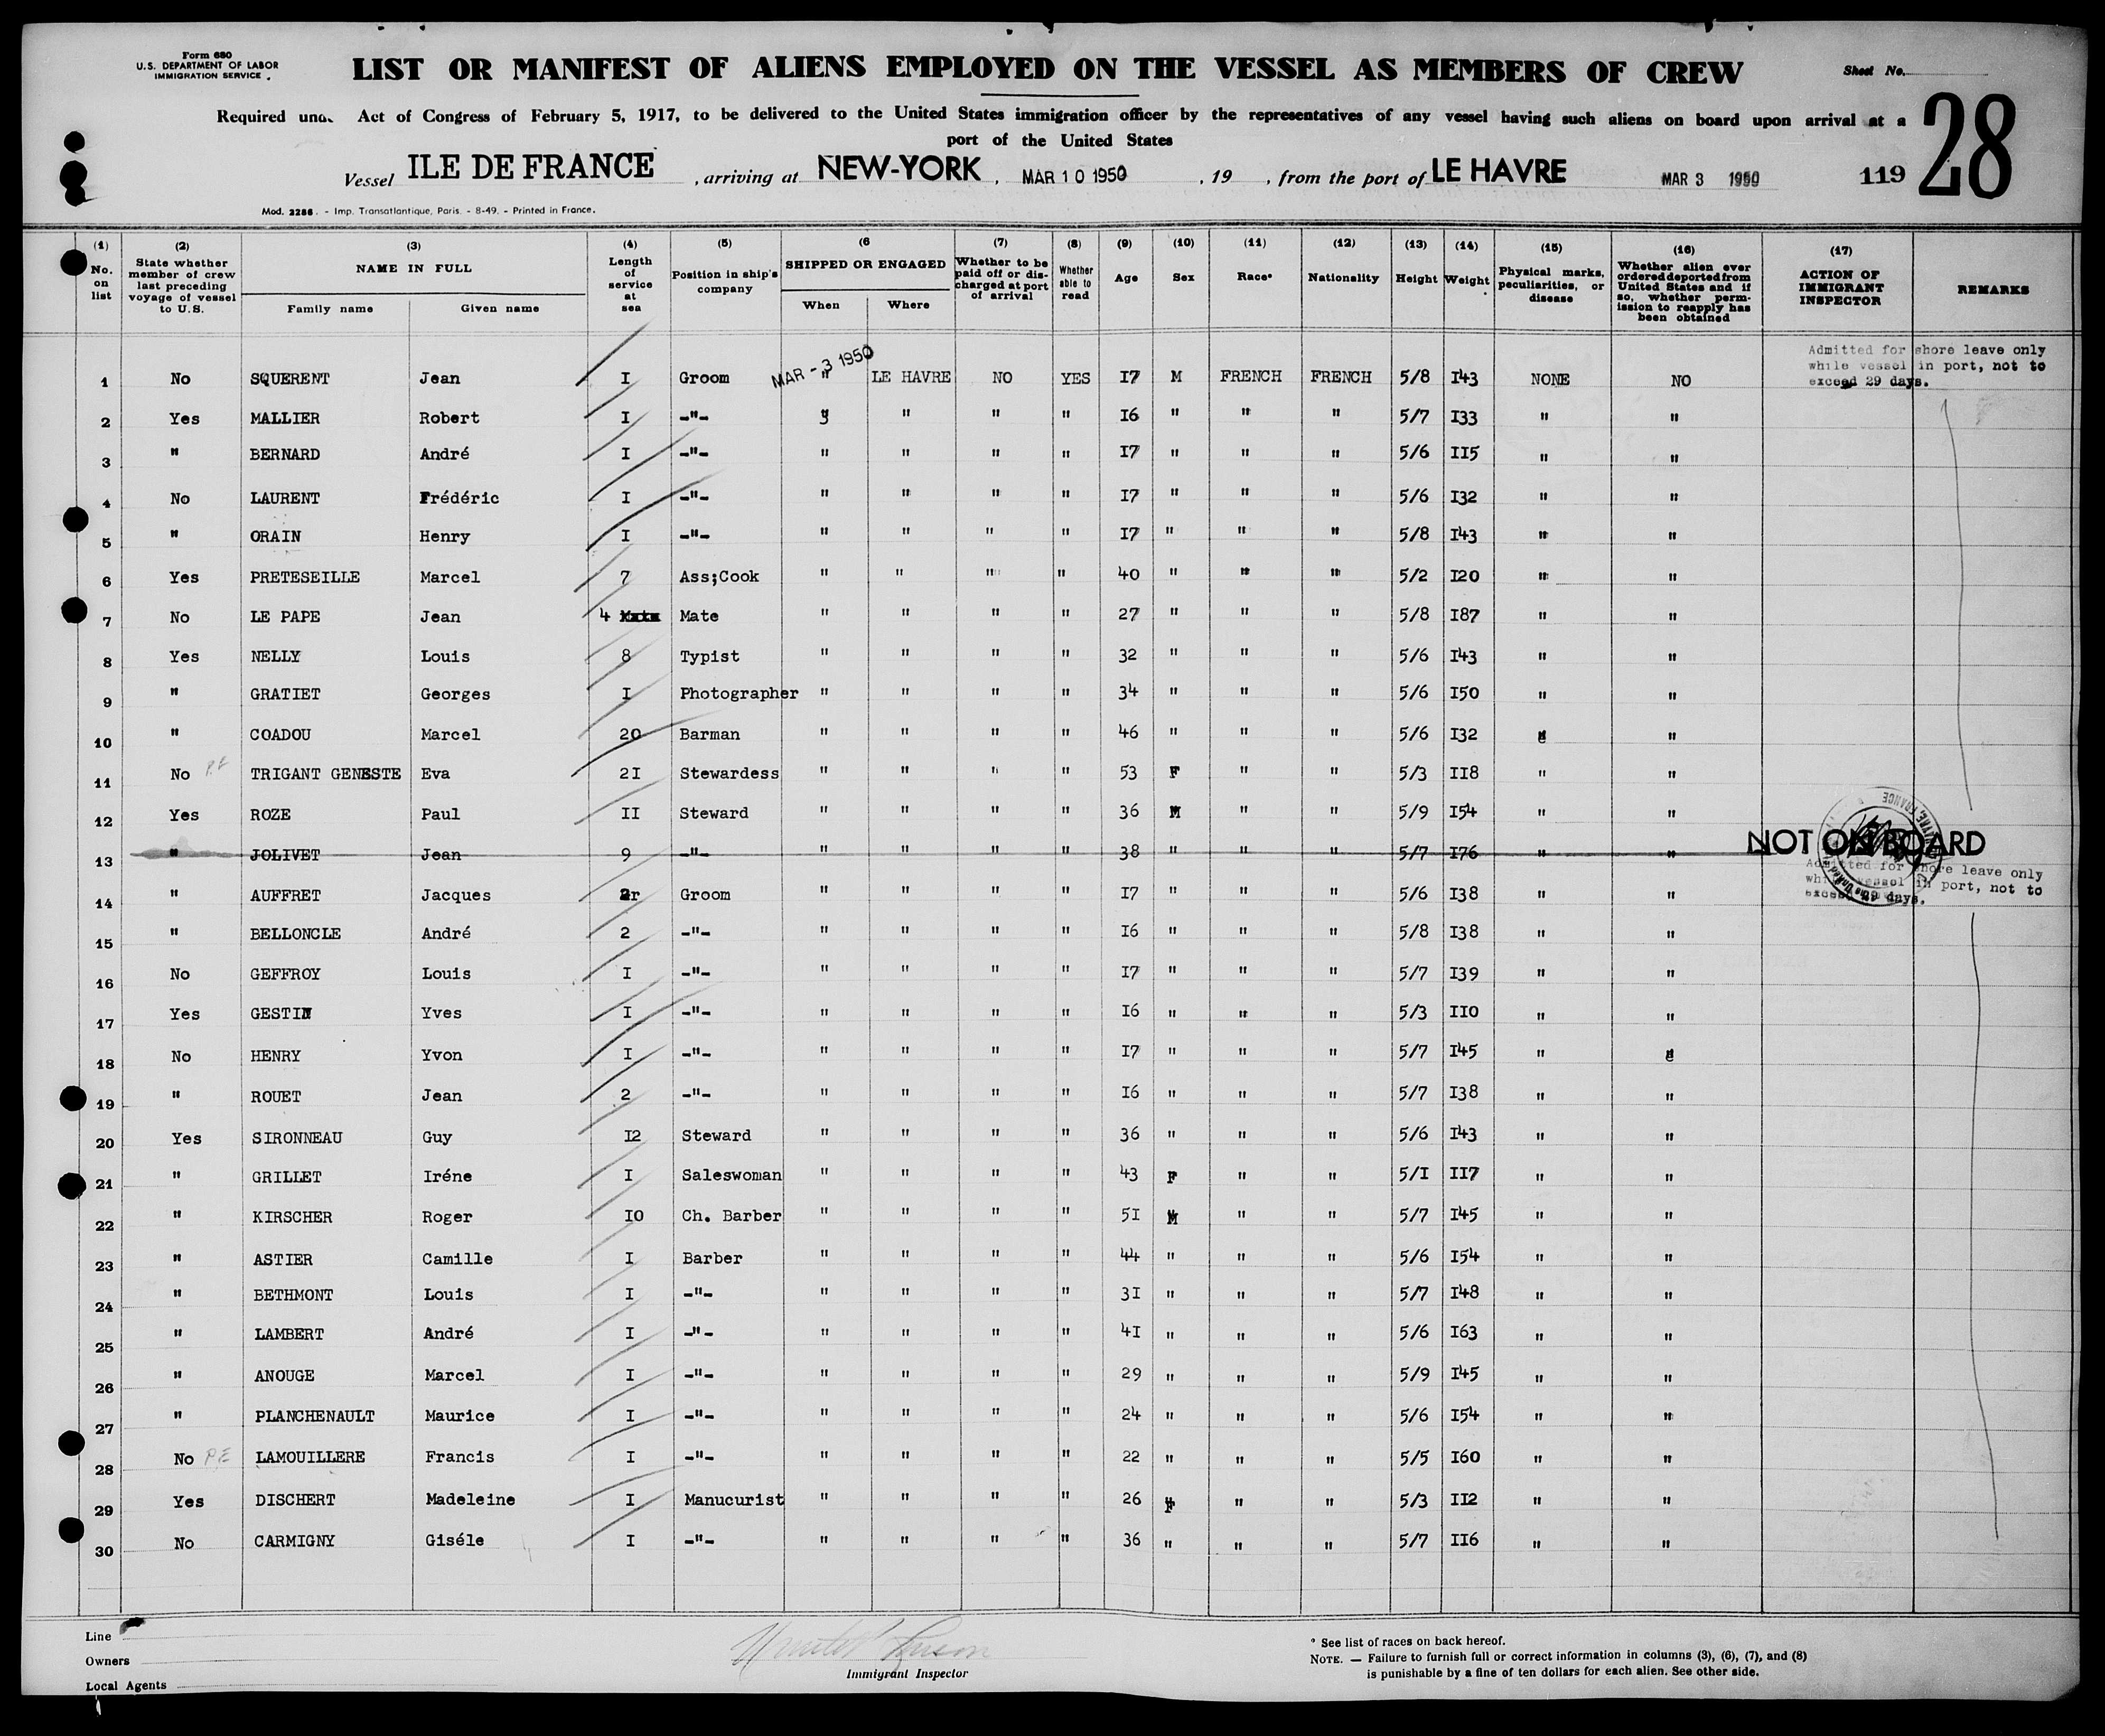 Form 680
U.S. DEPARTMENT OF LABOR
IMMIGRATION SERVICE
LIST OR MANIFEST OF ALIENS EMPLOYED ON THE VESSEL AS MEMBERS OF CREW
Sheet No.
28
Required Act of Congress of February 5, 1917, to be delivered to the United States immigration officer by the representatives of any vessel having such aliens on board upon arrival at a
port of the United States
Vessel ILE DE FRANCE , arriving at NEW-YORK , MAR 10 1950 , 19 , from the port of LE HAVRE MAR 3 1950 119
Mod. 2286. - Imp. Transatlantique, Paris. - 8-49. - Printed in France.
(1) No. on list
(2) State whether member of crew last preceding voyage of vessel to U.S.
(3) NAME IN FULL Family name Given name
(4) Length of service at sea
(5) Position in ship's company
(6 SHIPPED OR ENGAGED When Where
(7) Whether to be paid off or discharged at port of arrival
(8) Whether able to read
(9) Age
(10) Sex
(11) Race*
(12) Nationality
(13) Height
(14) Weight
(15) Physical marks, peculiarities, or disease
(16) Whether alien ever ordered deported from United States and if so, whether permission to reapply has been obtained
(17) ACTION OF IMMIGRANT INSPECTOR
REMARKS
Admitted for shore leave only
while vessel in port, not to
exceed 29 days.
1 No SQUERENT Jean I Groom MAR - 3 1950 " LE HAVRE NO YES I7 M FRENCH FRENCH 5/8 I43 NONE NO
2 Yes MALLIER Robert I -"- " " " " I6 " " " 5/7 I33 " "
3 " BERNARD André I -"- " " " " I7 " " " 5/6 II5 " "
4 No LAURENT Frédéric I -"- " " " " I7 " " " 5/6 I32 " "
5 " ORAIN Henry I -"- " " " " I7 " " " 5/8 I43 " "
6 Yes PRETESEILLE Marcel 7 Ass;Cook " " " " 40 " " " 5/2 I20 " "
7 No LE PAPE Jean 4 Mate " " " " 27 " " " 5/8 I87 " "
8 Yes NELLY Louis 8 Typist " " " " 32 " " " 5/6 I43 " "
9 " GRATIET Georges I Photographer " " " " 34 " " " 5/6 I50 " "
10 " COADOU Marcel 20 Barman " " " " 46 " " " 5/6 I32 " "
11 No P.E TRIGANT GENESTE Eva 2I Stewardess " " " " 53 F " " 5/3 II8 " "
12 Yes ROZE Paul II Steward " " " " 36 M " " 5/9 I54 " "
13 " JOLIVET Jean 9 -"- " " " " 38 " " " 5/7 I76 " " NOT ON BOARD
Admitted for shore leave only
while vessel in port, not to
exceed 29 days.
14 " AUFFRET Jacques 2r Groom " " " " I7 " " " 5/6 I38 " "
15 " BELLONCLE André 2 -"- " " " " I6 " " " 5/8 I38 " "
16 No GEFFROY Louis I -"- " " " " I7 " " " 5/7 I39 " "
17 Yes GESTIN Yves I -"- " " " " I6 " " " 5/3 II0 " "
18 No HENRY Yvon I -"- " " " " I7 " " " 5/7 I45 " "
19 " ROUET Jean 2 -"- " " " " I6 " " " 5/7 I38 " "
20 Yes SIRONNEAU Guy I2 Steward " " " " 36 " " " 5/6 I43 " "
21 " GRILLET Iréne I Saleswoman " " " " 43 F " " 5/I II7 " "
22 " KIRSCHER Roger I0 Ch. Barber " " " " 5I M " " 5/7 I45 " "
23 " ASTIER Camille I Barber " " " " 44 " " " 5/6 I54 " "
24 " BETHMONT Louis I -"- " " " " 3I " " " 5/7 I48 " "
25 " LAMBERT André I -"- " " " " 4I " " " 5/6 I63 " "
26 " ANOUGE Marcel I -"- " " " " 29 " " " 5/9 I45 " "
27 " PLANCHENAULT Maurice I -"- " " " " 24 " " " 5/6 I54 " "
28 No P.E LAMOUILLERE Francis I -"- " " " " 22 " " " 5/5 I60 " "
29 Yes DISCHERT Madeleine I Manucurist " " " " 26 F " " 5/3 II2 " "
30 No CARMIGNY Giséle I -"- " " " " 36 " " " 5/7 II6 " "
Line
Owners
Local Agents
Immigrant Inspector
* See list of races on back hereof.
NOTE. — Failure to furnish full or correct information in columns (3), (6), (7), and (8)
is punishable by a fine of ten dollars for each alien. See other side.